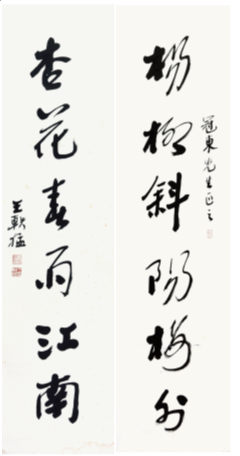 楊柳斜陽外
冠東先生正之
杏花春雨江南
王猛